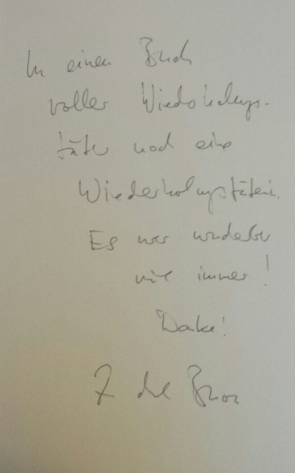 In einem Buch
voller Wiederholungs-
täter noch eine
Wiederholungstäterin.
Es war wunderbar
wie immer!
Danke!